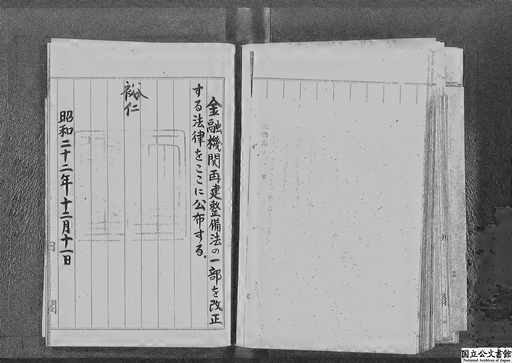 金融機関再建整備法の一部を改正
する法律をここに公布する。
裕仁
昭和二十二年十二月十一日
内閣
国立公文書館
National Archives of Japan